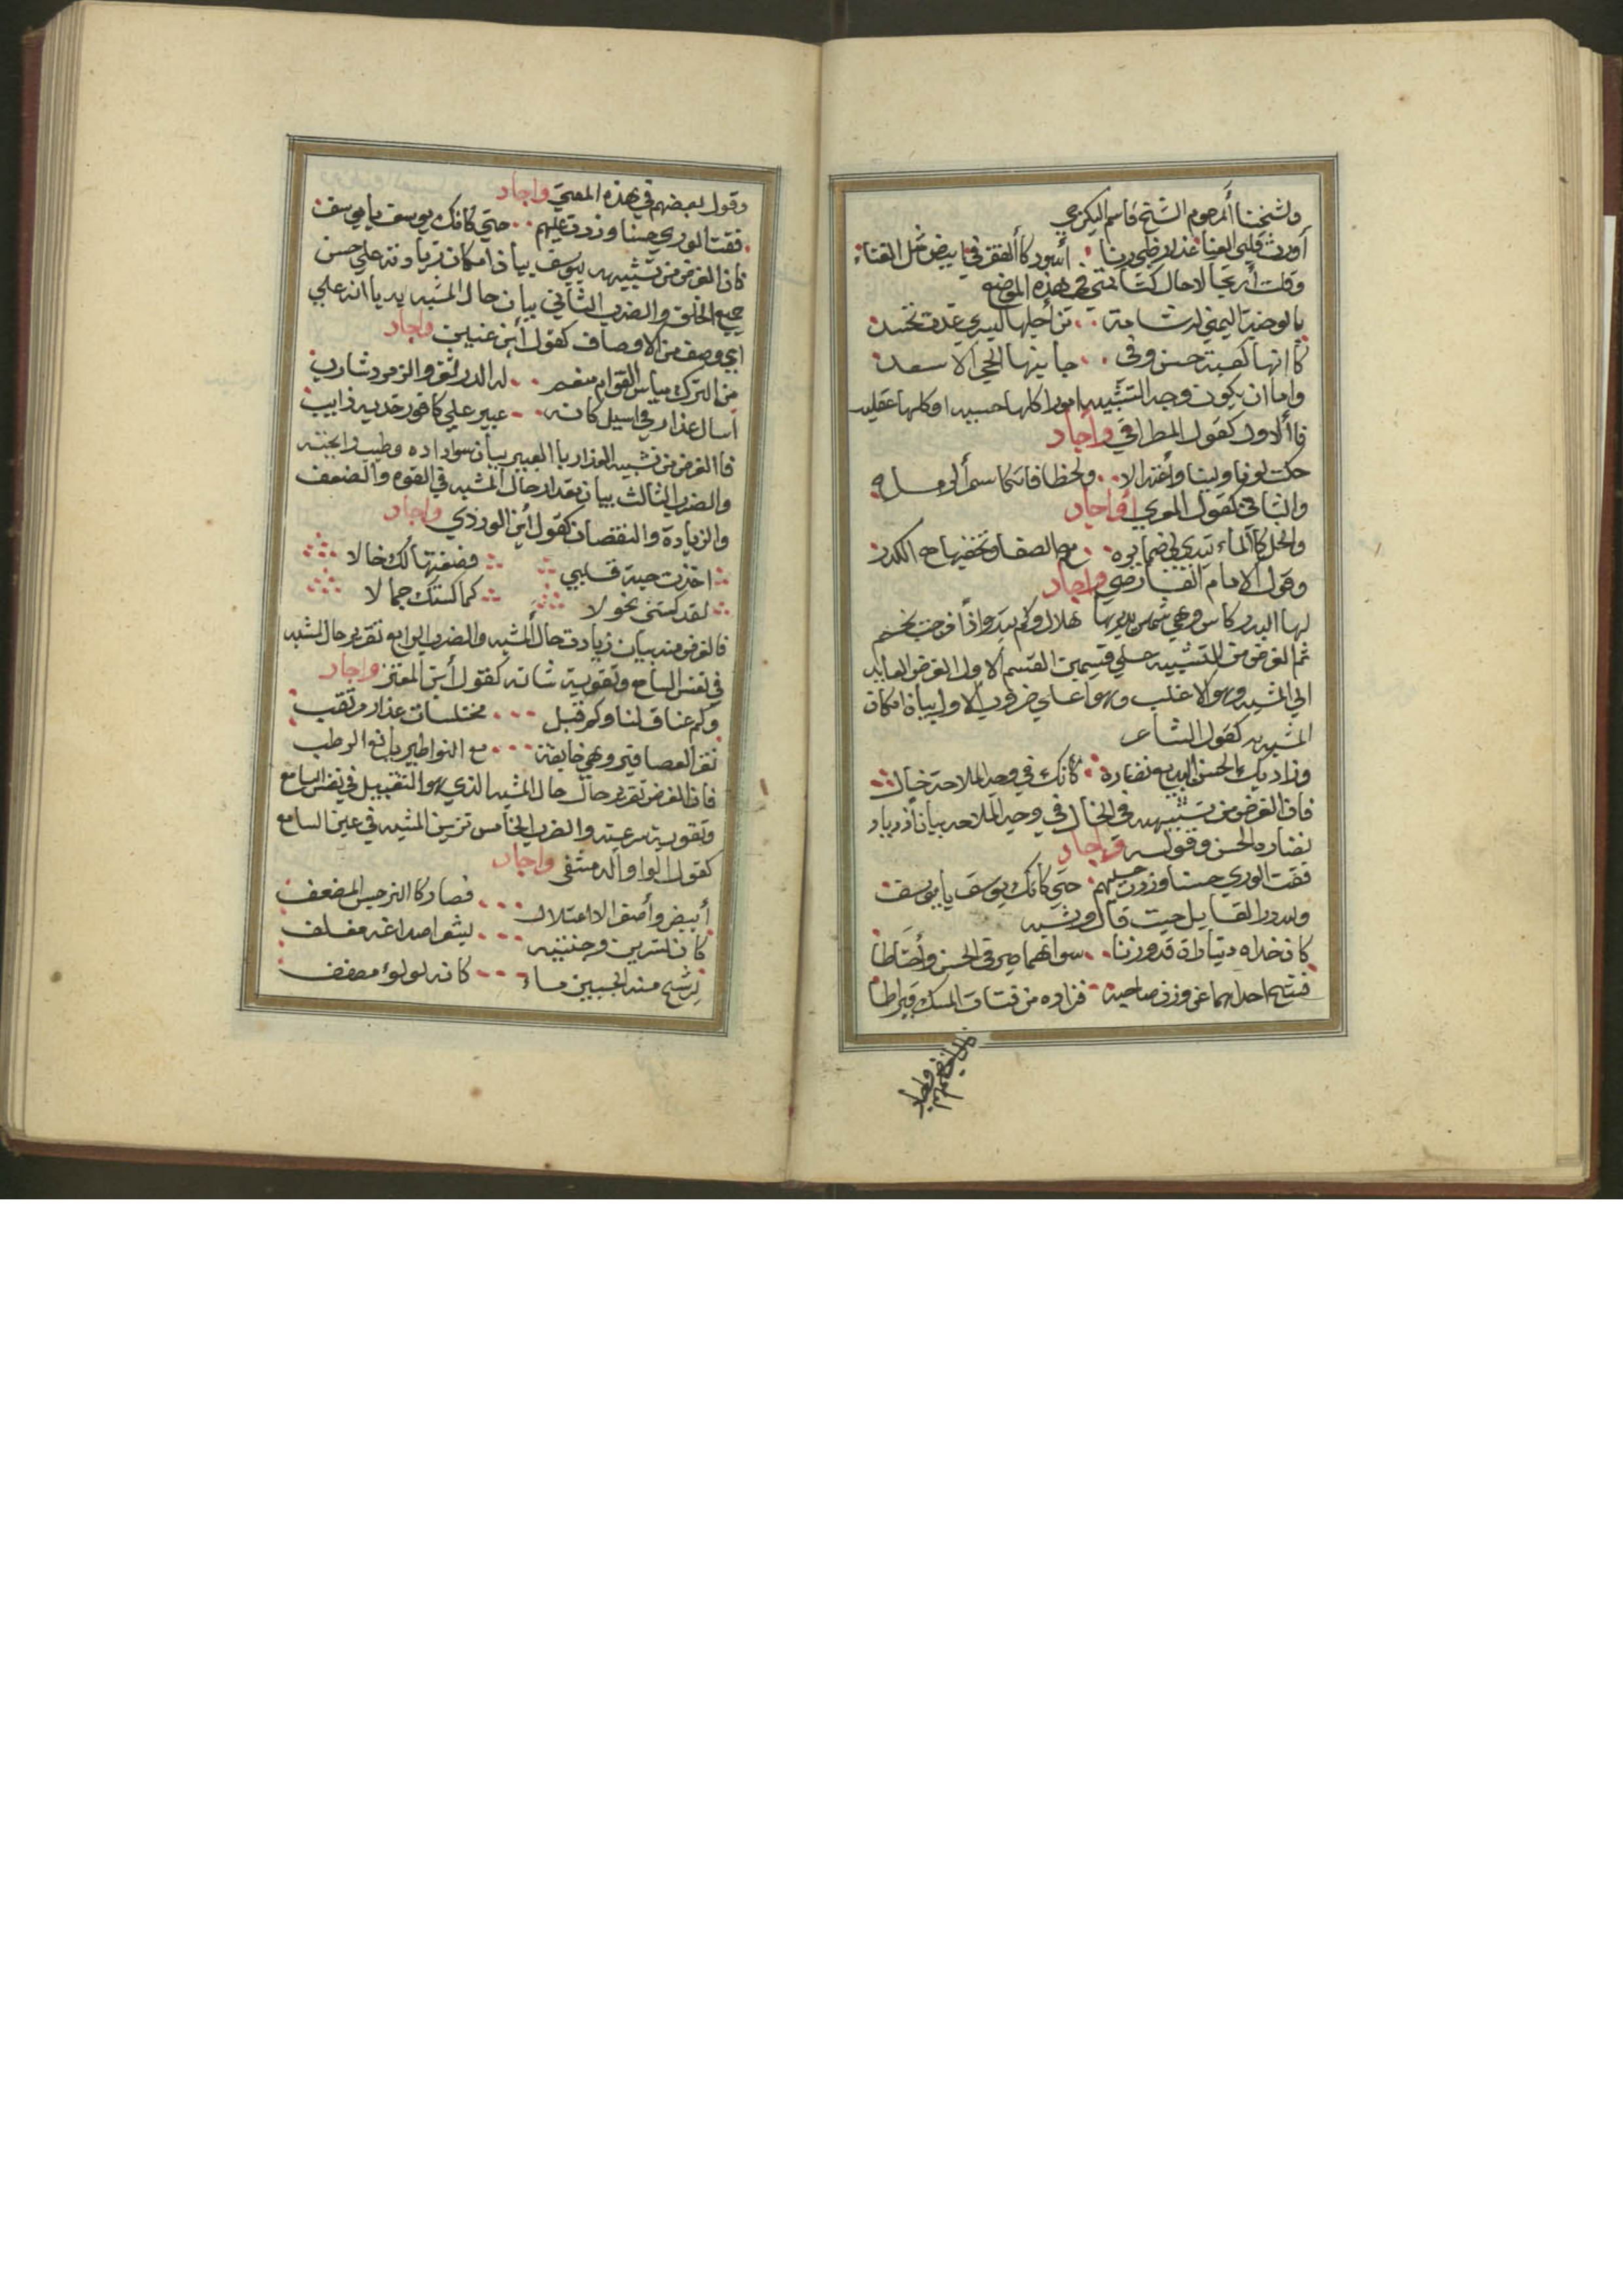 ولشيخنا المرحوم الشيخ قاسم البكرجي
أورث قلبي العنا عذار ظبي رنا أسود كالفقر في ابيض مثل الغناء
وقلت ارتجالا حال كتابتي في هذه الموضع
بالوجنة اليمني له شامة من أجلها اليسري غدت تحسد
كانها كعبة حسن وفي جانبها الحجر الاسعد
واما ان يكون وجه التشبيه امورا كلها حسية او كلها عقلية
فاألاول كقول المطرافي وأجاد
حكت لونا ولينا واعتدالا ولحظا قاتلا سمر
والثاني كقول المعري وأجاد
والخل كاألماء يبدي لي ضمايره مع الصفا وتخفيها مع الكدر
وقول الامام الفارضي واجاد
لها البدر كاس وهي شمس يديرها هلال وكم يبدو اذا مزجت نجم
ثم الغرض من التشبيه علي قسمين القسم الاول الغرض العايد
الي المشبه وهو الاغلب وهو علي ضروب الاول بيان امكان
المشبه به كقول الشاعر
وزاد بك الحسن البديع نضارة كانك في وجه الملاحة خال
فان الغرض من تشبيهه في الخال في وجه الملاحه بيان ازدياد
نضاره الحسن وقوله واجاد
فقت الوري حسنا وزدت عليهم حتي كانك يوسف يا يوسف
ولله در القايل حيث قال
كان خداه ديناران قد وزنا سواهما صيرفي الحسن وأحتاطا
احداهما عن وزن صاحبه فزاده من فتات المسك قيراطا
وقول بعضهم في هذه المعني واجاد
فقت الوري حسنا وزدت عليهم حتي كانك يوسف يا يوسف
فان الغرض من تشبيهه بيوسف بيان امكان زيادته علي حسن
جميع الخلق والضرب الثاني بيان حال المشبه به يا انه علي
اي وصف من الاوصاف كقول أبن عنين واجاد
من الترك مياس القوام منعم له الدر ثغر والزمرد شارب
أسال عذار في اسيل كانه عبير علي كافور خديه ذايب
فاالغرض من تشبيه العذار باالعبير بيان سواده وطيب رايحته
والضرب الثالث بيان مقدار حال المشبه في القوه والضعف
والزيادة والنقصان كقول أبن الوردي واجاد
اخذت حبة قلبي فصغتها لك خالا
لقد كستني نحولا كما كستك جمالا
فالغرض منه بيان زيادة حال ألمشبه والضرب الرابع تقرير حال المشبه
في نفس السامع وتقوية شانه كقول أبن المعتز واجاد
وكم عناق لنا وكم قبل مختلسات حذار مرتقب
نقر العصافير وهي خايفة مع النواطير يانع الرطب
فان الغرض تقرير حال حال المشبه الذي هو التقبيل في نفس السامع
وتقوية سرعته والضرب الخامس تزيين المشبه في عين السامع
كقول الواوا الدمشقي واجاد
أبيض وأصفر لاعتلال فصار كاالنرجس المضعف
كان نسرين وجنتيه بشعر اصداغه مغلف
يرشح منه الجبين ماء كانه لولوء مصفف